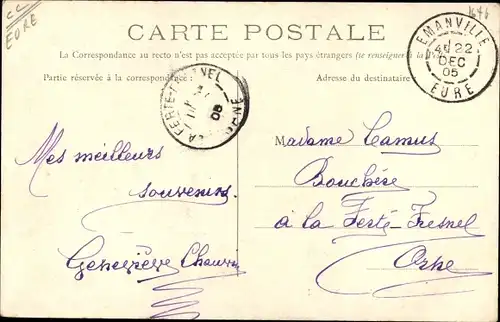 CC
EURE
1646
CARTE POSTALE
La Correspondance au recto n'est pas acceptée par tous les pays étrangers (se renseigner à la
Partie réservée à la correspondance:
Adresse du destinataire:
EMANVILLE
22
DEC
05
EURE
LA FERTÉ-FRESNEL
05
ORNE
Mes meilleurs
souvenirs.
Geneviève
Madame Camus
Bouchère
à la Ferté-Fresnel
Orne